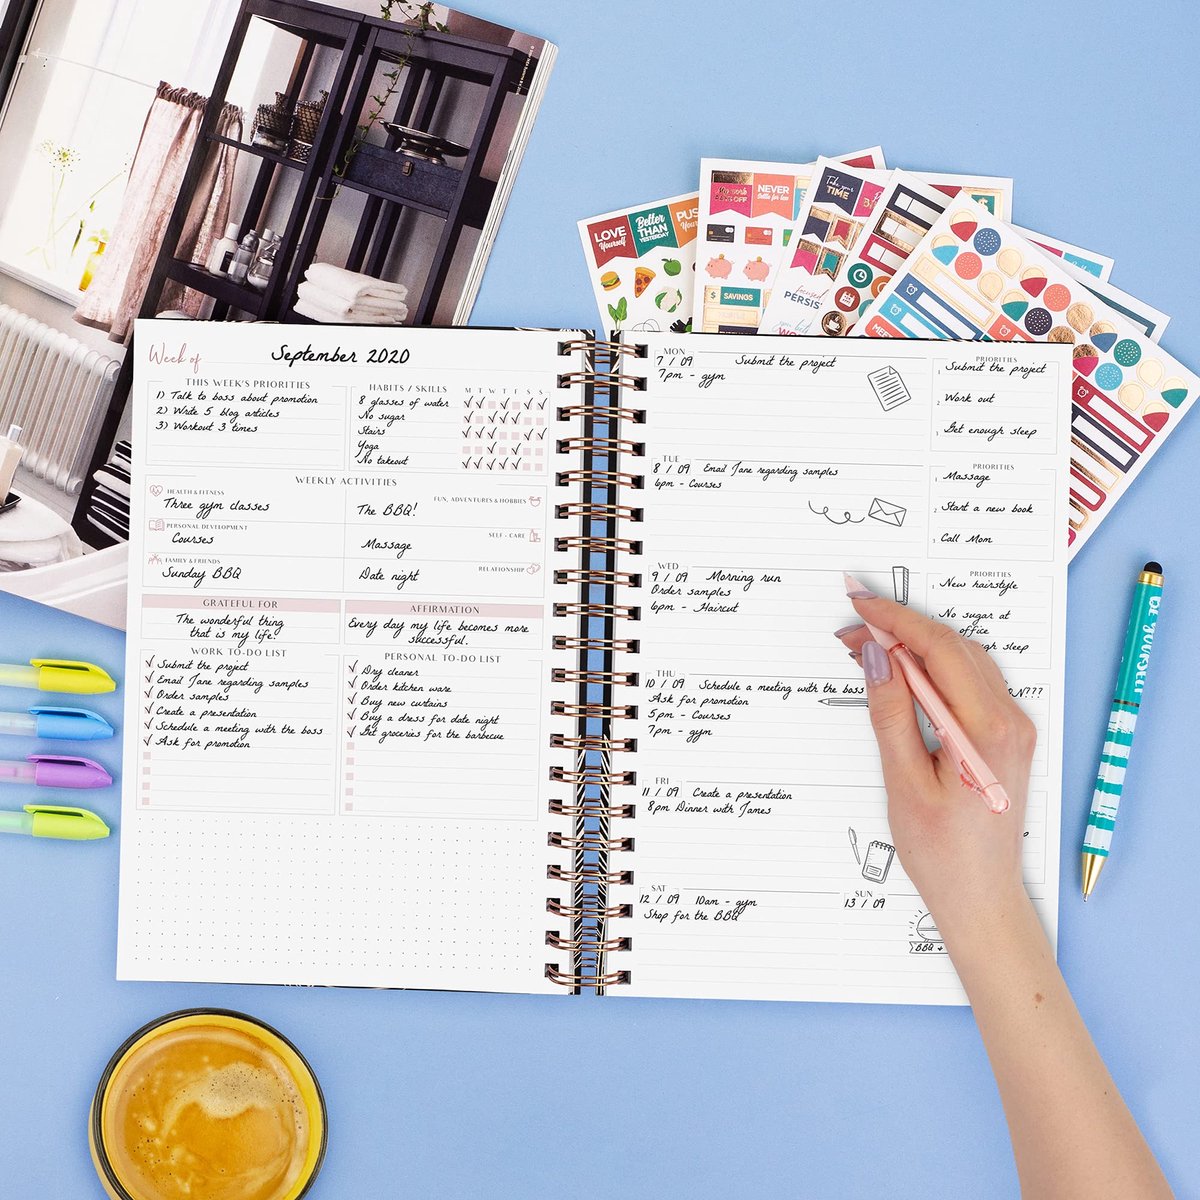 LOVE
Yourself
Better
THAN
YESTERDAY
PUS
NEVER
Settle for less
SAVINGS
Take your
TIME
focused
PERSIS
Week of
September 2020
THIS WEEK'S PRIORITIES
1) Talk to boss about promotion
2) Write 5 blog articles
3) Workout 3 times
HABITS / SKILLS
M T W T F S S
8 glasses of water
No sugar
Stairs
Yoga
No takeout
WEEKLY ACTIVITIES
HEALTH & FITNESS
Three gym classes
FUN, ADVENTURES & HOBBIES
The BBQ!
PERSONAL DEVELOPMENT
Courses
SELF - CARE
Massage
FAMILY & FRIENDS
Sunday BBQ
RELATIONSHIP
Date night
GRATEFUL FOR
The wonderful thing
that is my life.
AFFIRMATION
Every day my life becomes more
successful.
WORK TO-DO LIST
Submit the project
Email Jane regarding samples
Order samples
Create a presentation
Schedule a meeting with the boss
Ask for promotion
PERSONAL TO-DO LIST
Dry cleaner
Order kitchen ware
Buy new curtains
Buy a dress for date night
Get groceries for the barbecue
MON
7 / 09 Submit the project
7pm - gym
PRIORITIES
Submit the project
2 Work out
3 Get enough sleep
TUE
8 / 09 Email Jane regarding samples
6pm - Courses
PRIORITIES
1 Massage
2 Start a new book
3 Call Mom
WED
9 / 09 Morning run
Order samples
6pm - Haircut
PRIORITIES
1 New hairstyle
No sugar at
office
ough sleep
THU
10 / 09 Schedule a meeting with the boss
Ask for promotion
5pm - Courses
7pm - gym
ON???
FRI
11 / 09 Create a presentation
8pm Dinner with James
SAT
12 / 09 10am - gym
Shop for the BBQ
SUN
13 / 09
BBQ +
be yourself